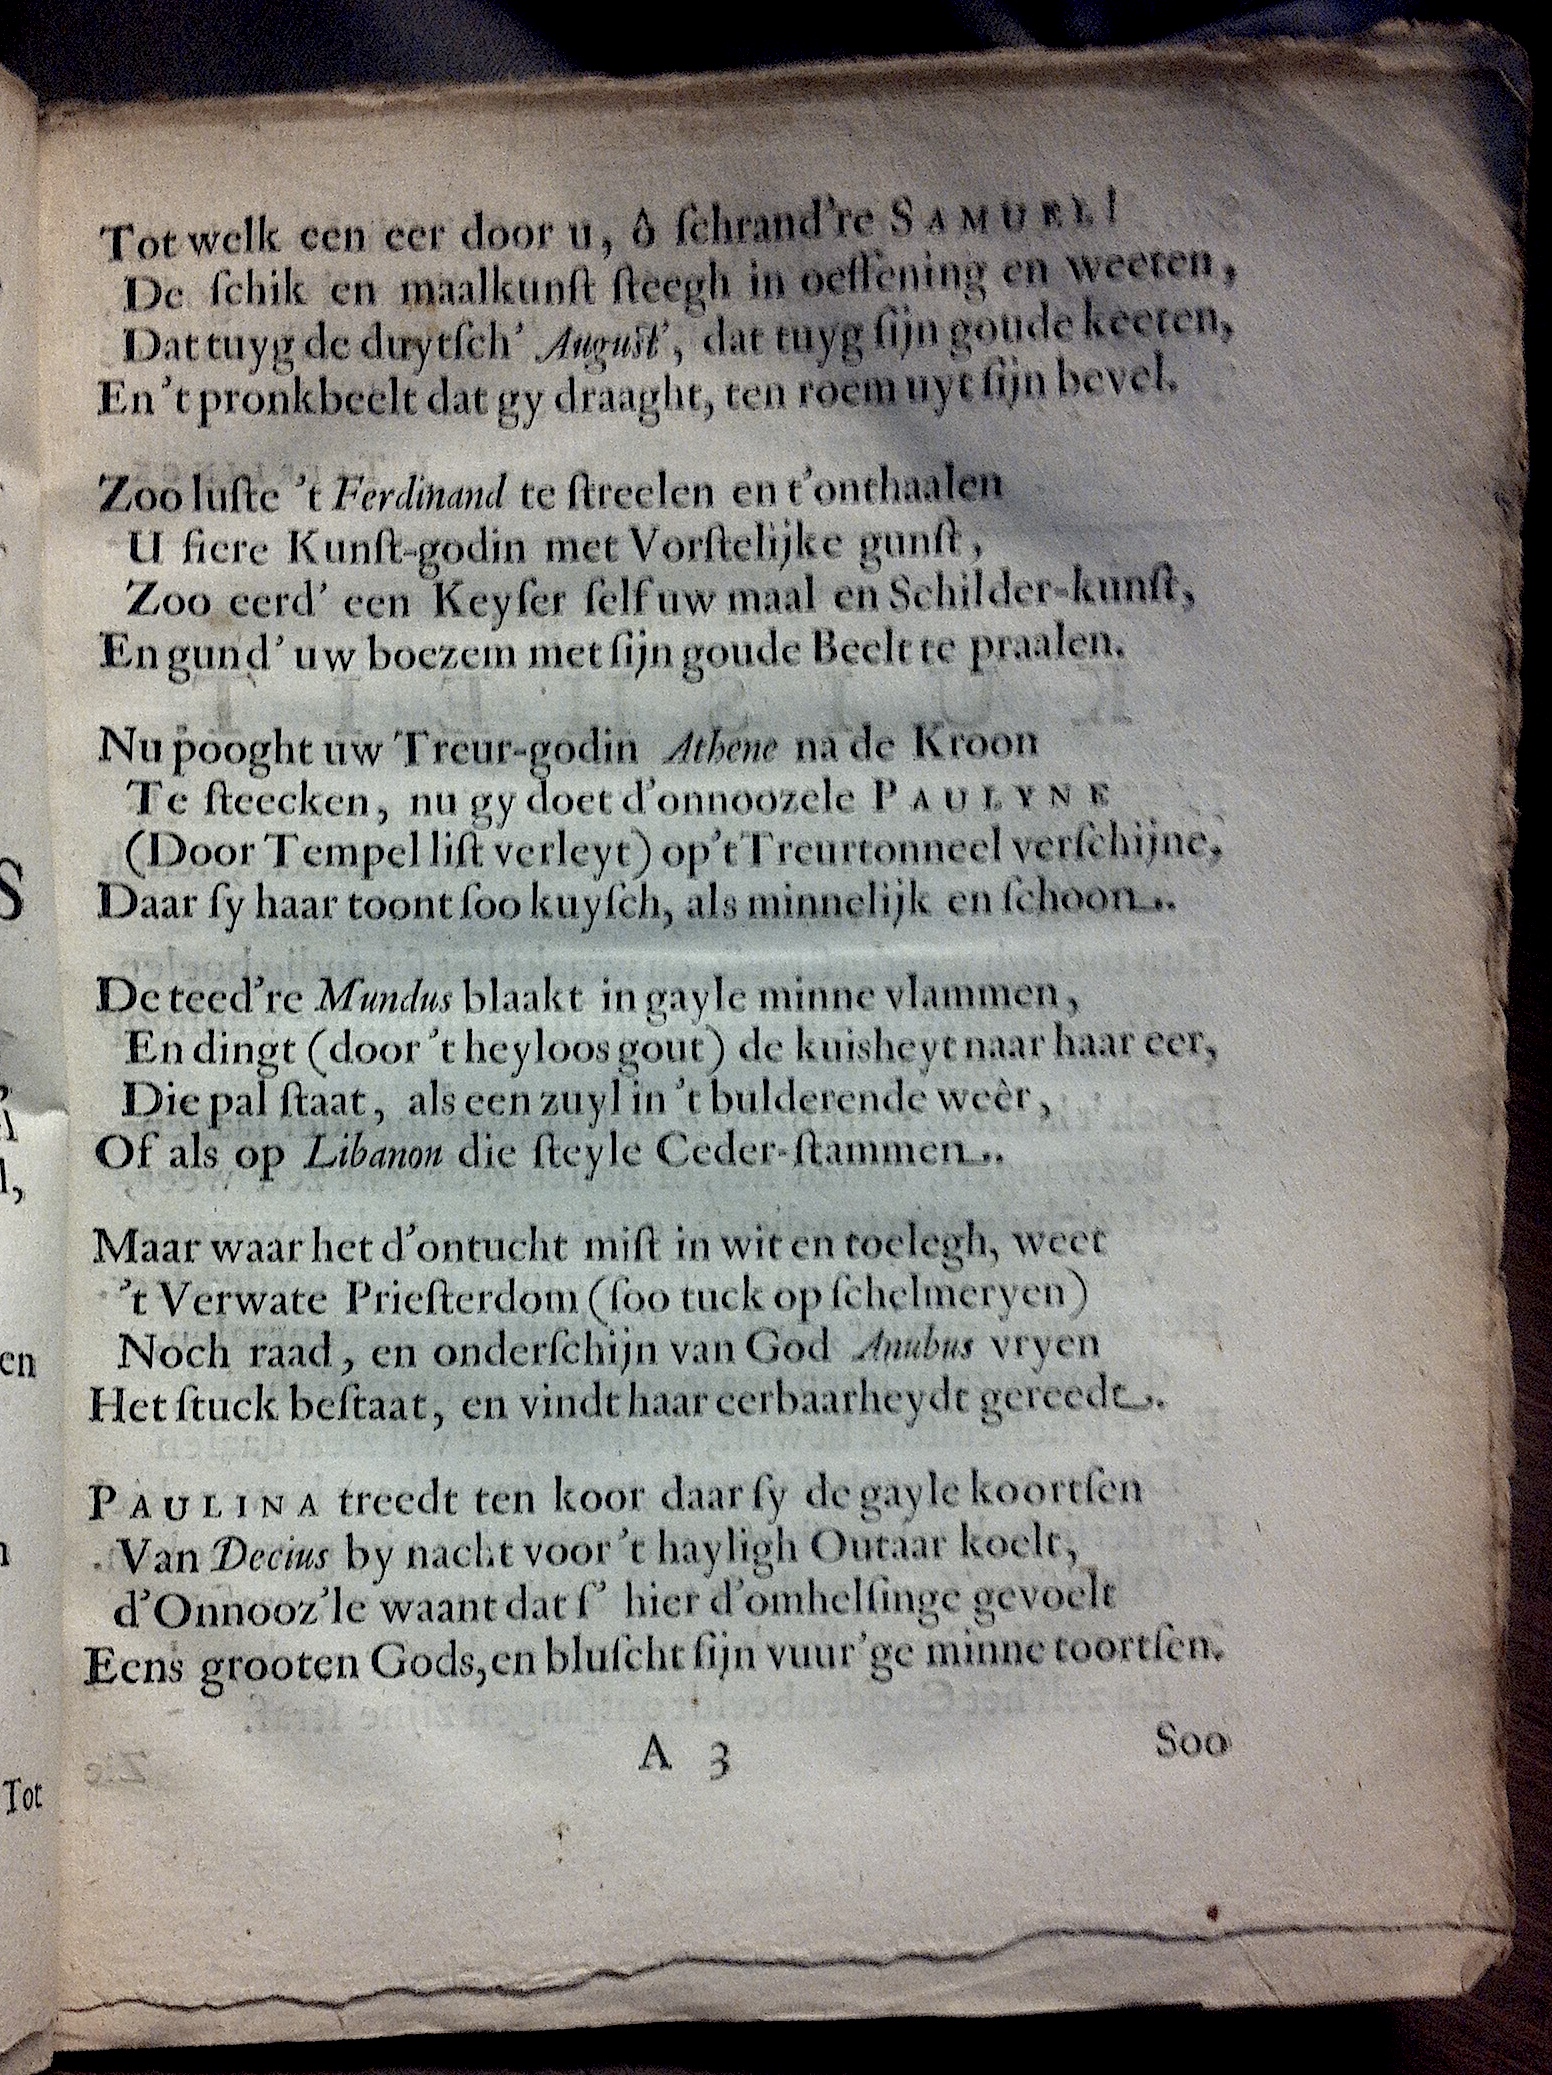 Tot welk een eer door u, ô ſchrand’re SAMUEL!
De ſchik en maalkunſt ſteegh in oeffening en weeten,
Dat tuyg de duytſch’ Auguſt’, dat tuyg ſijn goude keeten,
En ’t pronkbeelt dat gy draaght, ten roem uyt ſijn bevel.
Zoo luſte ’t Ferdinand te ſtreelen en t’onthaalen
U fiere Kunſt-godin met Vorſtelijke gunſt,
Zoo eerd’ een Keyſer ſelf uw maal en Schilder-kunſt,
En gund’ uw boezem met ſijn goude Beelt te praalen.
Nu pooght uw Treur-godin Athene na de Kroon
Te ſteecken, nu gy doet d’onnoozele PAULYNE
(Door Tempel liſt verleyt) op’t Treurtonneel verſchijne,
Daar ſy haar toont ſoo kuyſch, als minnelijk en ſchoon.
De teed’re Mundus blaakt in gayle minne vlammen,
En dingt (door ’t heyloos gout) de kuisheyt naar haar eer,
Die pal ſtaat, als een zuyl in ’t bulderende weêr,
Of als op Libanon die ſteyle Ceder-ſtammen.
Maar waar het d’ontucht miſt in wit en toelegh, weet
’t Verwate Prieſterdom (ſoo tuck op ſchelmeryen)
Noch raad, en onderſchijn van God Anubus vryen
Het ſtuck beſtaat, en vindt haar eerbaarheydt gereedt.
PAULINA treedt ten koor daar ſy de gayle koortſen
Van Decius by nacht voor ’t hayligh Outaar koelt,
d’Onnooz’le waant dat ſ’ hier d’omhelſinge gevoelt
Eens grooten Gods, en bluſcht ſijn vuur’ge minne toortſen.
A 3
Soo
S
l,
en
Tot